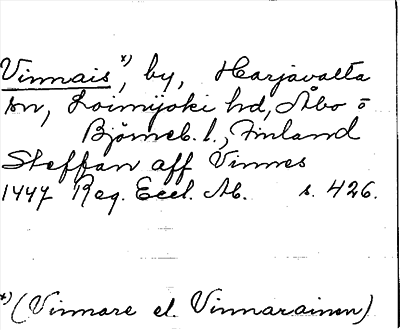 Vinnais*), by, Harjavalta
sn, Loimijoki hd, Åbo o
Björneb. l., Finland
Steffan aff Vinnes
1447 Reg. Eccl. Ab. s. 426.
*) (Vinnare el. Vinnarainen)